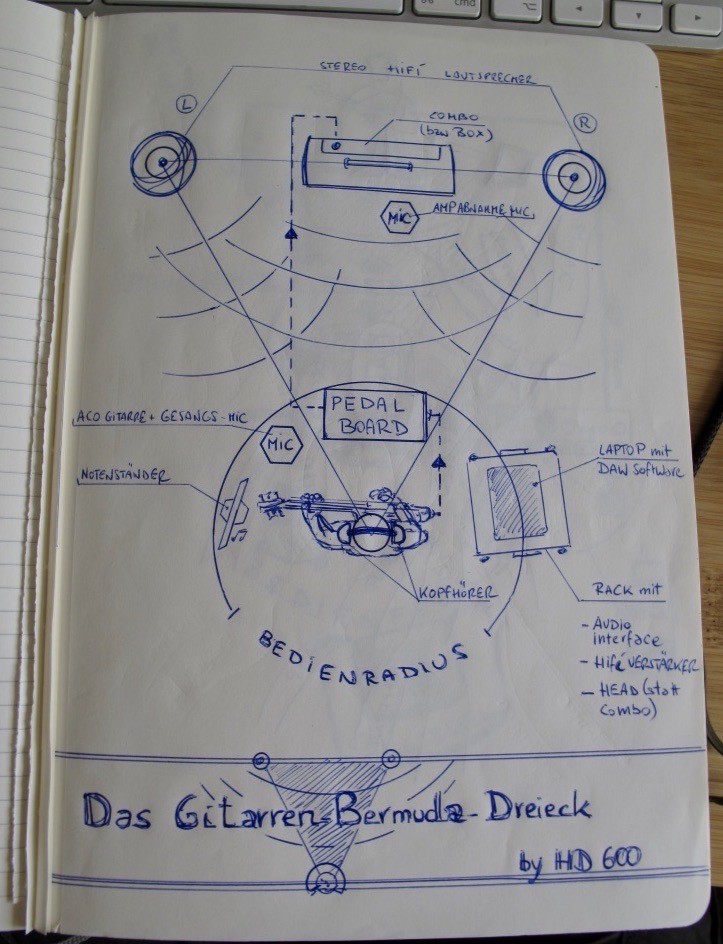 cmd
STEREO HiFi LAUTSPRECHER
L
R
COMBO
(bzw BOX)
MIC
AMPABNAHME MIC
PEDAL
BOARD
ACO GITARRE + GESANGS-MIC
MIC
NOTENSTÄNDER
LAPTOP mit
DAW Software
KOPFHÖRER
RACK mit
- AUDIO
interface
- Hifi VERSTÄRKER
- HEAD (statt
Combo)
BEDIENRADIUS
Das Gitarren-Bermuda-Dreieck
by HD 600